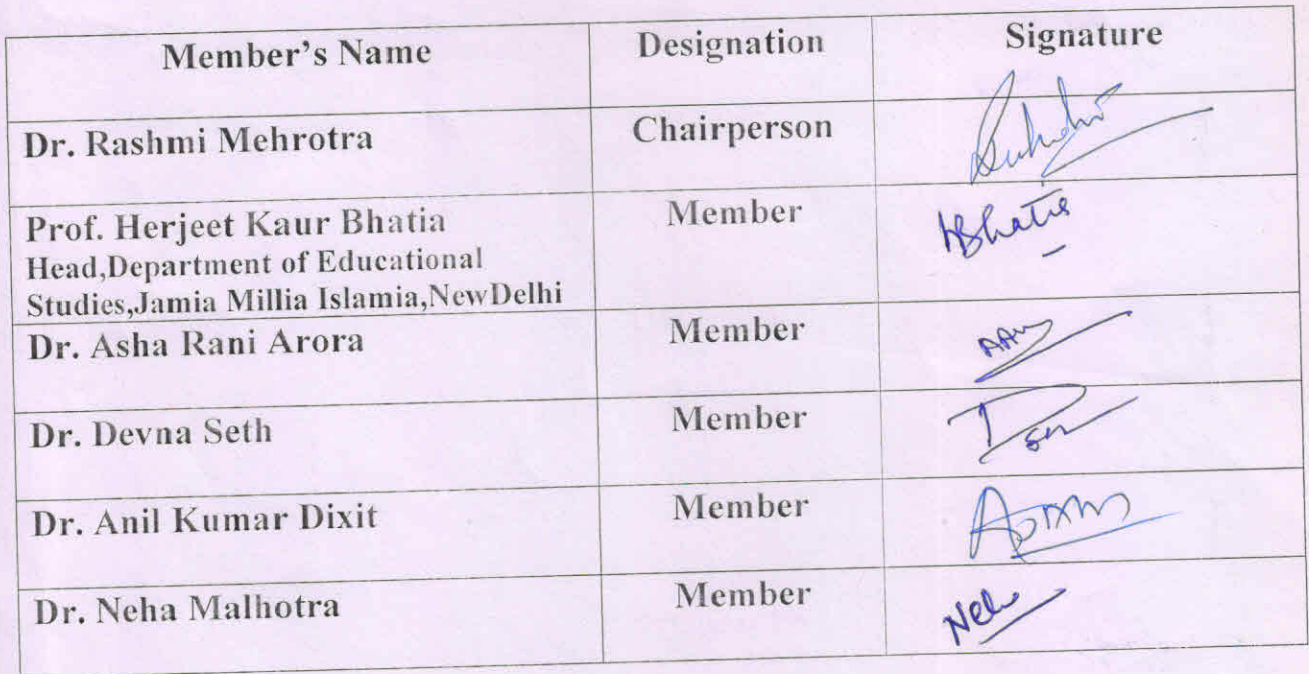 Member's Name Designation Signature
Dr. Rashmi Mehrotra Chairperson
Prof. Herjeet Kaur Bhatia Member HBhatia
Head,Department of Educational
Studies,Jamia Millia Islamia,NewDelhi
Dr. Asha Rani Arora Member
Dr. Devna Seth Member
Dr. Anil Kumar Dixit Member
Dr. Neha Malhotra Member Neha